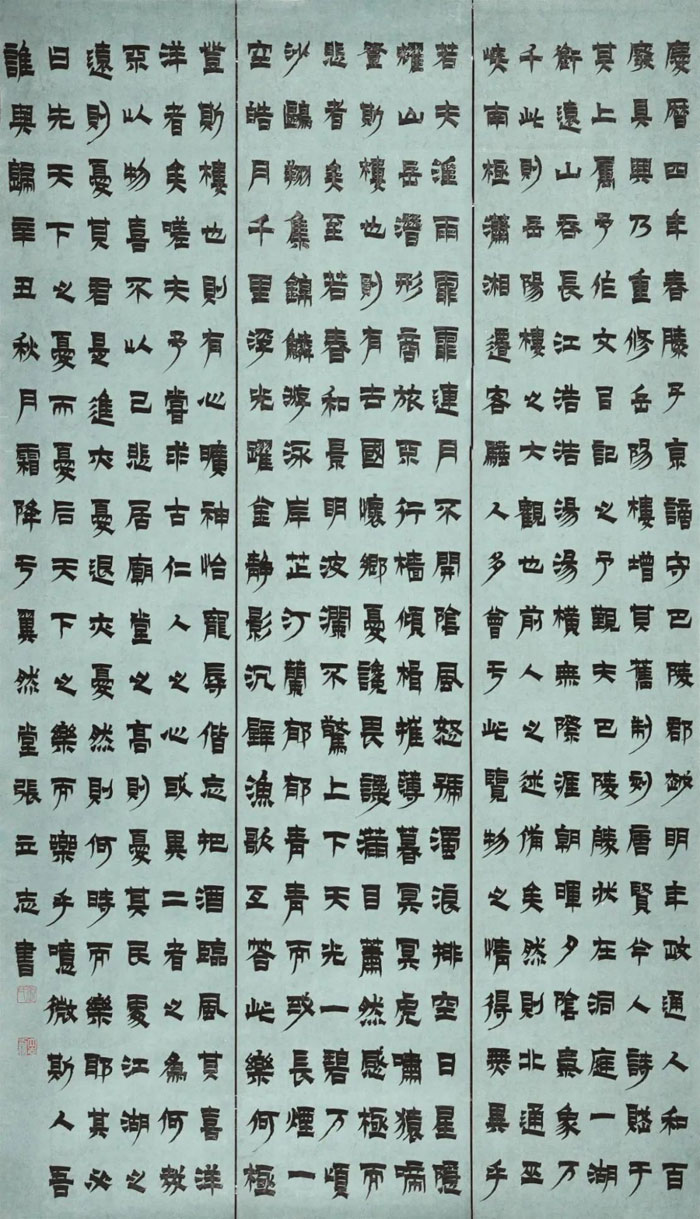 慶曆四年春滕子京謫守巴陵郡越明年政通人和百
廢具興乃重修岳陽樓增其舊制刻唐賢今人詩賦于
其上屬予作文㠯記之予觀夫巴陵勝狀在洞庭一湖
銜遠山吞長江浩浩湯湯橫無際涯朝暉夕陰氣象万
千此則岳陽樓之大觀也前人之述備矣然則北通巫
峽南極瀟湘遷客騷人多會于此覽物之情得無異乎
若夫淫雨霏霏連月不開陰風怒號濁浪排空日星隱
耀山岳潛形商旅不行檣傾楫摧薄暮冥冥虎嘯猿啼
登斯樓也則有去國懷鄉憂讒畏譏滿目蕭然感極而
悲者矣至若春和景明波瀾不驚上下天光一碧万頃
沙鷗翔集錦鱗游泳岸芷汀蘭郁郁青青而或長煙一
空皓月千里浮光躍金靜影沉璧漁歌互答此樂何極
登斯樓也則有心曠神怡寵辱偕忘把酒臨風其喜洋
洋者矣嗟夫予嘗求古仁人之心或異二者之為何哉
不以物喜不以己悲居廟堂之高則憂其民處江湖之
遠則憂其君是進亦憂退亦憂然則何時而樂耶其必
曰先天下之憂而憂后天下之樂而樂乎噫微斯人吾
誰與歸辛丑秋月霜降于翼然堂張立志書